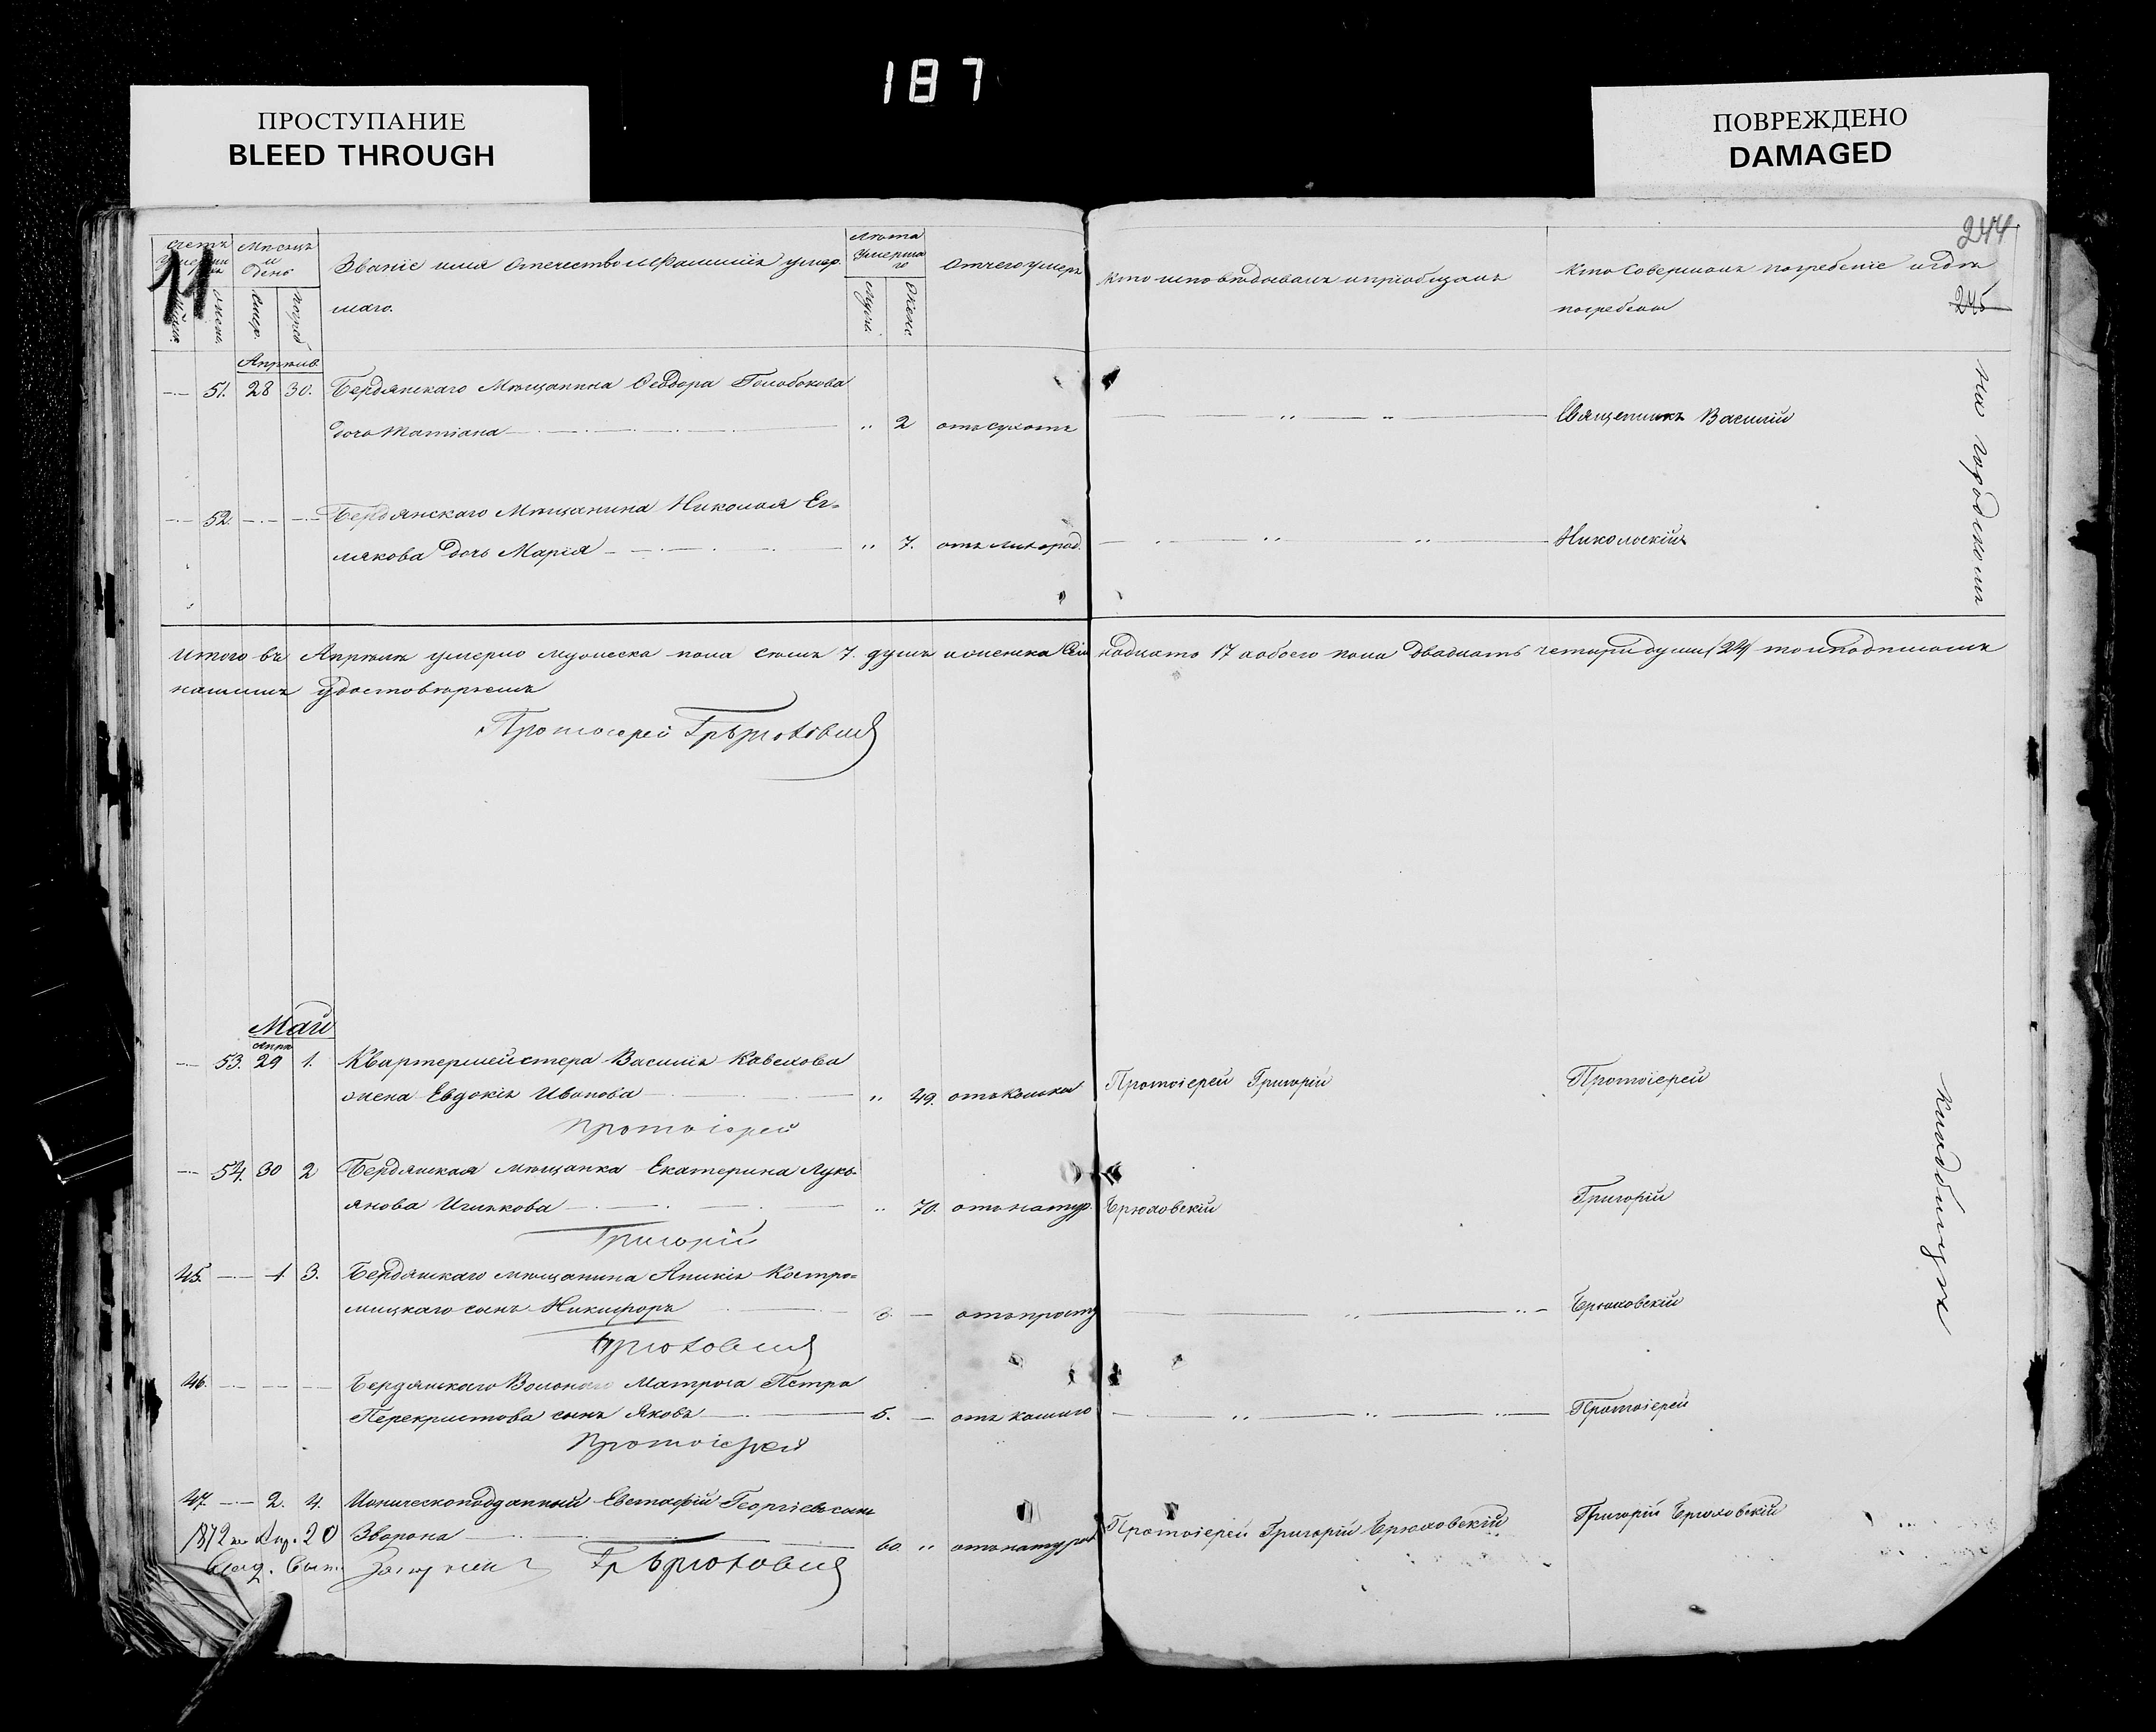 187
ПРОСТУПАНИЕ
BLEED THROUGH
ПОВРЕЖДЕНО
DAMAGED
244
245
11
Счетъ
Мѣсяцъ и день
Званіе имя Отечество и Фамилія умер-
шаго.
Лѣта умершаго
Отчего умеръ
Кто исповѣдывалъ и пріобщалъ
Кто Совершалъ погребеніе и гдѣ
погребены
Апрѣль
51. 28 30. Бердянскаго Мѣщанина Феодора Голобокова
дочь Татіана 2 отъ сухотъ Священникъ Василій
52. Бердянскаго Мѣщанина Николая Ег-
лякова дочь Марія 7. отъ лихорад. Никольскій
На городскомъ
Итого въ Апрѣлѣ умерло мужеска пола семъ 7. душъ и женска Сем надцать 17 а обоего пола двадцать четыри души (24) то и подписомъ
нашимъ удостовѣряемъ
Протоіерей Гр Брюховскій
Май
Апрѣ
53. 29 1. Квартермейстера Василія Кавелова
жена Евдокія Иванова 49. отъ Протоіерей Григорій Протоіерей
Протоіерей
54. 30 2 Бердянская мѣщанка Екатерина Лукь-
янова 70. отъ натур. Брюховскій Григорій
Григорій
45. 1 3. Бердянскаго мѣщанина Костро-
мицкаго сынъ Никифоръ 3. отъ просту Брюховскій
Брюховскій
46. Бердянскаго Матроса Петра
Перекристова сынъ Яковъ 5. отъ кашлю Протоіерей
Протоіерей
47. 2. 4. Іоническоподданный Евстафій Георгіевъ сынъ
60. отъ натуры Протоіерей Григорій Брюховскій Григорій Брюховскій
1872 20
Гр Брюховскій
кладбищѣ